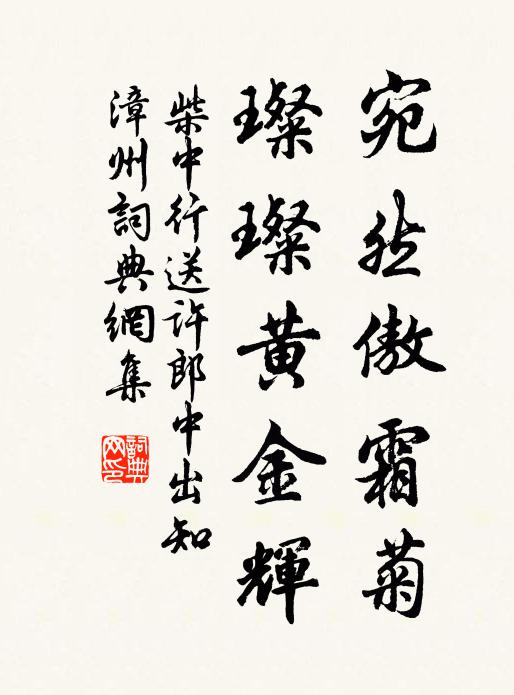 宛然傲霜菊
璨璨黄金輝
柴中行送許郎中出知
漳州詞典網集
詞典网印